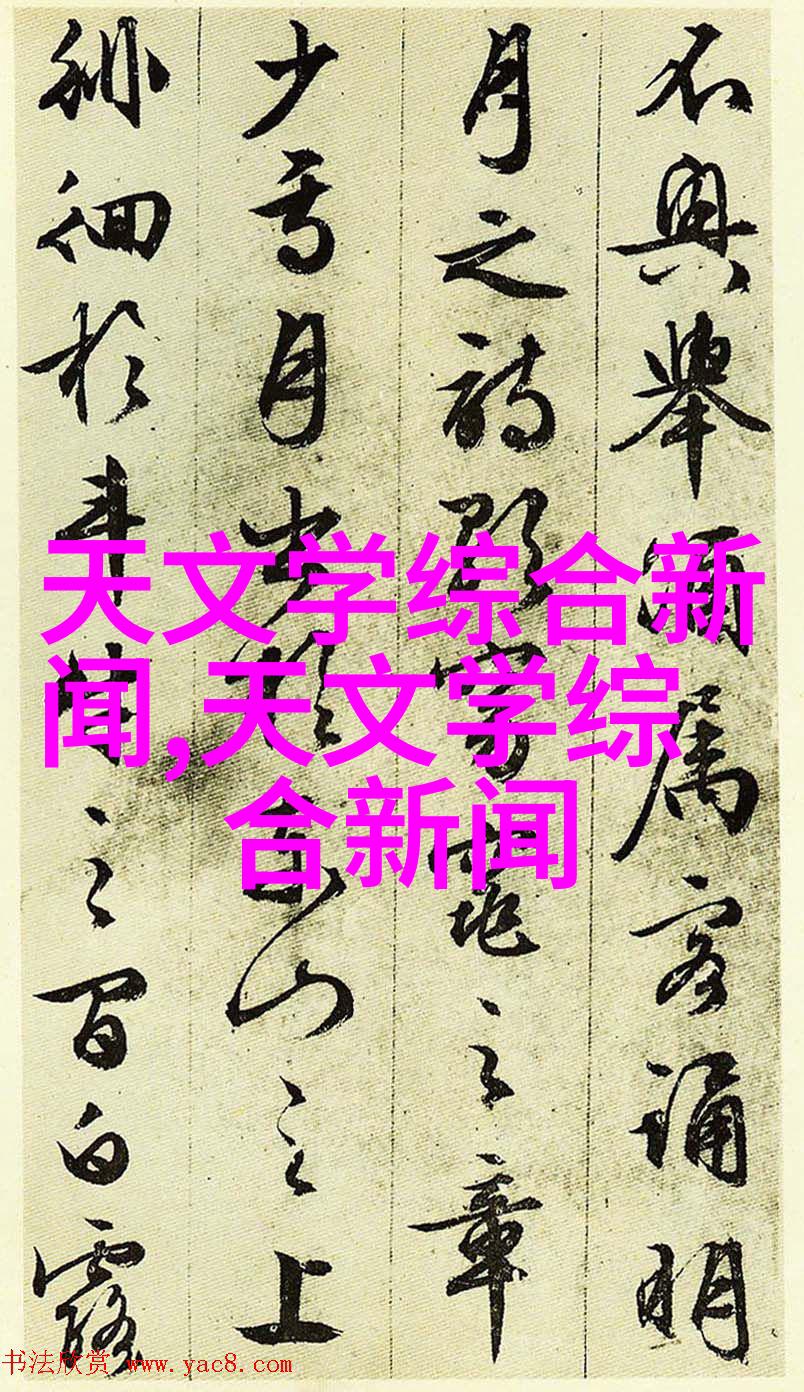 不興舉屬客誦明
月之詩歌窈窕之章
少焉月出於東山之上
徘徊於斗牛之間白露
天文学综合新
闻,天文学综
合新闻
书法欣赏 www.yac8.com